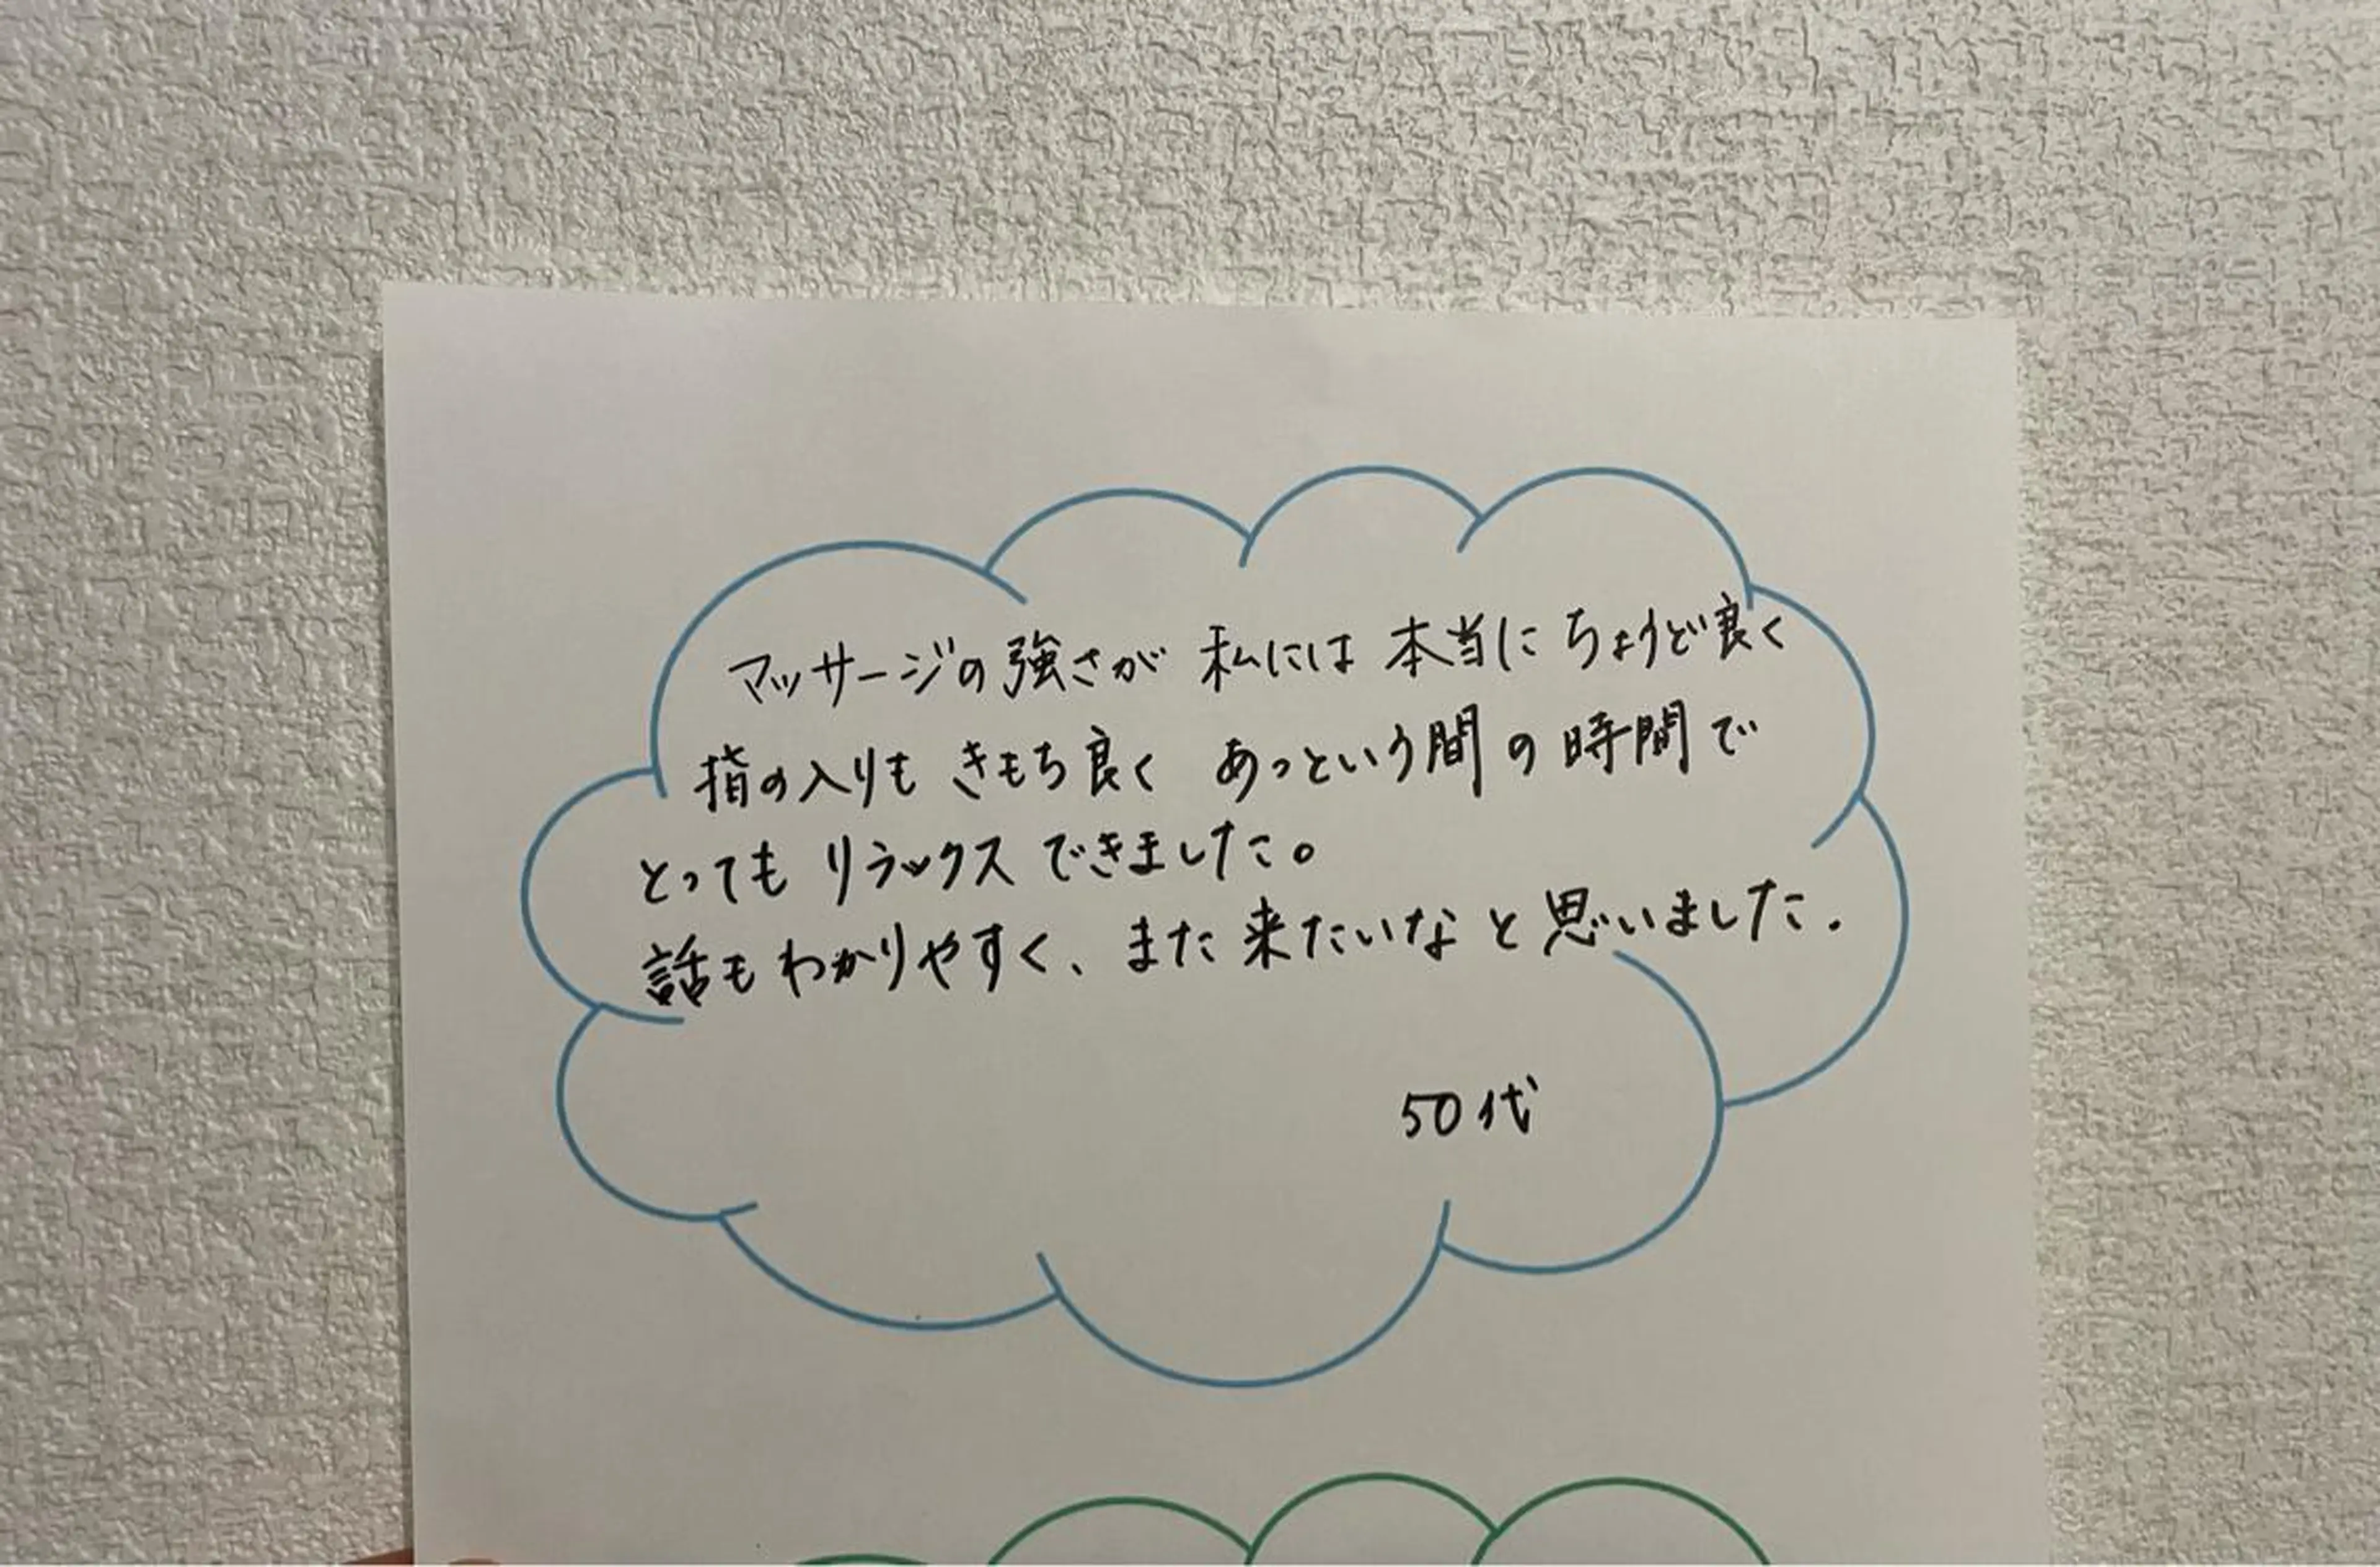 マッサージの強さが 私には 本当に ちょうど良く
指の入りも きもち良く あっという間の時間で
とっても リラックス できました。
話もわかりやすく、また来たいなと思いました.
50代